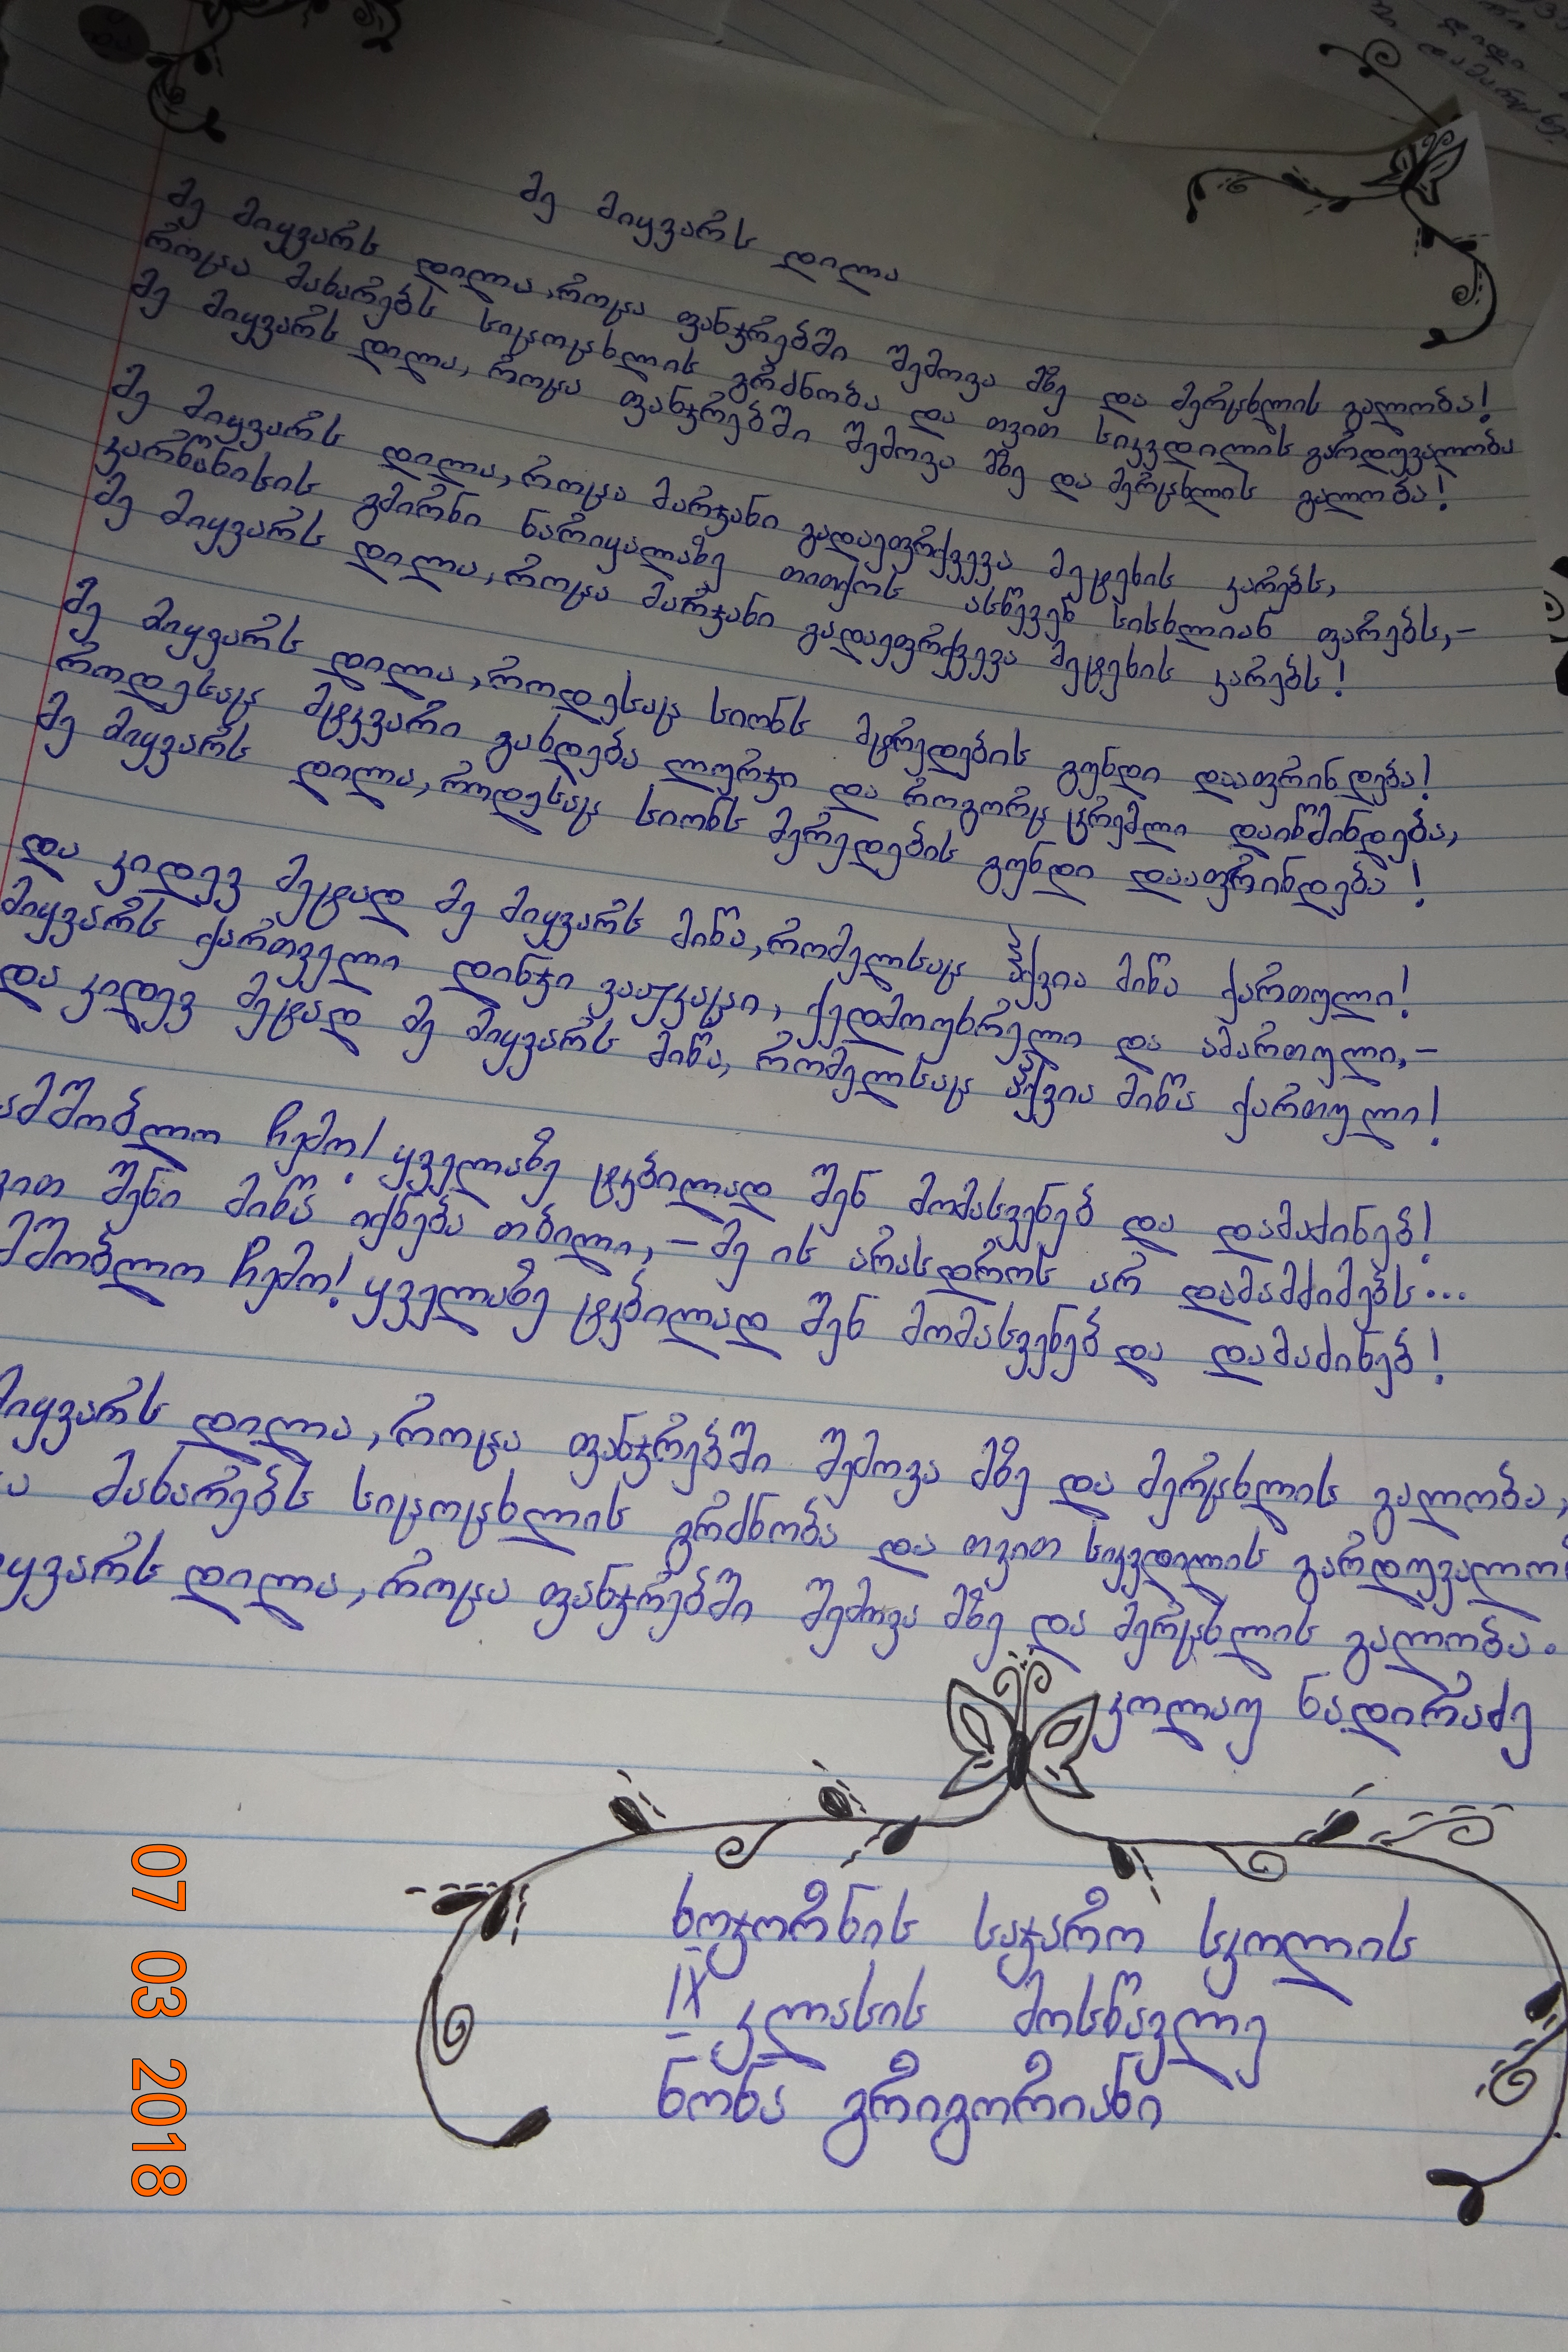 მე მიყვარს დილა
მე მიყვარს დილა, როცა ფანჯრებში შემოვა მზე და მერცხლის გალობა!
როცა მახარებს სიცოცხლის გრძნობა და თვით სიკვდილის გარდუვალობა
მე მიყვარს დილა, როცა ფანჯრებში შემოვა მზე და მერცხლის გალობა!
მე მიყვარს დილა, როცა მარჯანი გადაეფრქვევა მეტეხის კარებს,
კარწანისის გმირნი ნარიყალაზე თითქოს ასწევენ სისხლიან ფარებს,–
მე მიყვარს დილა, როცა მარჯანი გადაეფრქვევა მეტეხის კარებს!
მე მიყვარს დილა, როდესაც სიონს მტრედების გუნდი დააფრინდება!
როდესაც მტკვარი გახდება ლურჯი და როგორც ცრემლი დაიწმინდება,
მე მიყვარს დილა, როდესაც სიონს მერედების გუნდი დააფრინდება!
და კიდევ მეტად მე მიყვარს მიწა, რომელსაც ჰქვია მიწა ქართული!
მიყვარს ქართველი დინჯი ვაჟკაცი, ქედმოუხრელი და ამართული,–
და კიდევ მეტად მე მიყვარს მიწა, რომელსაც ჰქვია მიწა ქართული!
ამშობლო ჩემო! ყველაზე ტკბილად შენ მომასვენებ და დამაძინებ!
ვით შენი მიწა იქნება თბილი,– მე ის არასდროს არ დამამძიმებს...
მშობლო ჩემო! ყველაზე ტკბილად შენ მომასვენებ და დამაძინებ!
მიყვარს დილა, როცა ფანჯრებში შემოვა მზე და მერცხლის გალობა,
ა მახარებს სიცოცხლის გრძნობა და თვით სიკვდილის გარდუვალობ
იყვარს დილა, როცა ფანჯრებში შემოვა მზე და მერცხლის გალობა.
კოლაუ ნადირაძე
ხოჯორნის საჯარო სკოლის
IX კლასის მოსწავლე
ნონა გრიგორიანი
07 03 2018